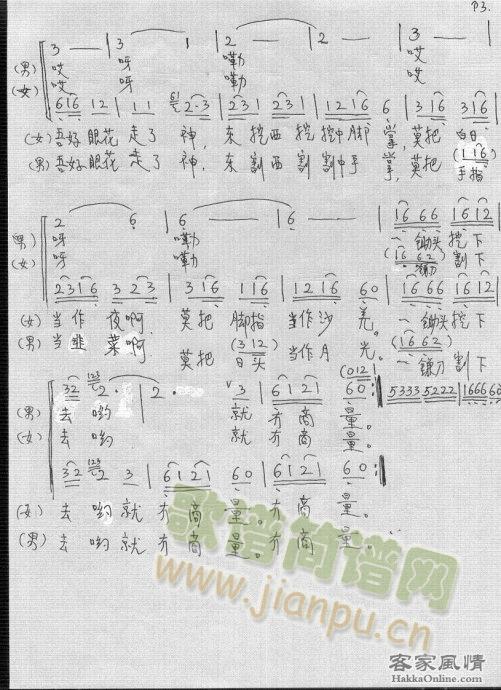 P3.
3 — | 3 1 | 2 — | 2 — | 3 — |
(男) 哎 呀 嘞 哎
(女) 哎 呀 嘞 哎
616 12 | 11 61 2·3 | 231 231 | 1216 6 | 316 316 |
(女) 吾好眼花 走了神, 东挖西挖挖中脚掌,莫把 白日
(116)
(男) 吾好眼花 走了神, 东割西割割中手掌,莫把 手指
2 6 | 6 — | 6 — | — | 1666 1612 |
(男) 呀 嘞 一锄头挖下
(16 62)
(女) 呀 嘞 一镰刀割下
2316 323 | 316 116 | 1216 60 | 1666 1612 |
(女) 当作 夜啊. 莫把 脚指 当作沙羌。 一锄头挖下
(312) (1662)
(男) 当韭菜啊 莫把 日头 当作月光。 一镰刀割下
(012)
32 123 2· | 2· V 3 | 6121 60 :‖ 5333 5222 | 1666 60
(男) 去 哟 就 冇商 量。
(女) 去 哟 就 冇商 量。
32 123 2 3 | 6121 60 | 6121 60 :‖
(女) 去 哟就 冇商 量。冇商 量。
(男) 去 哟就 冇商 量。冇商 量。
歌谱简谱网
www.jianpu.cn
客家風情
HakkaOnline.com